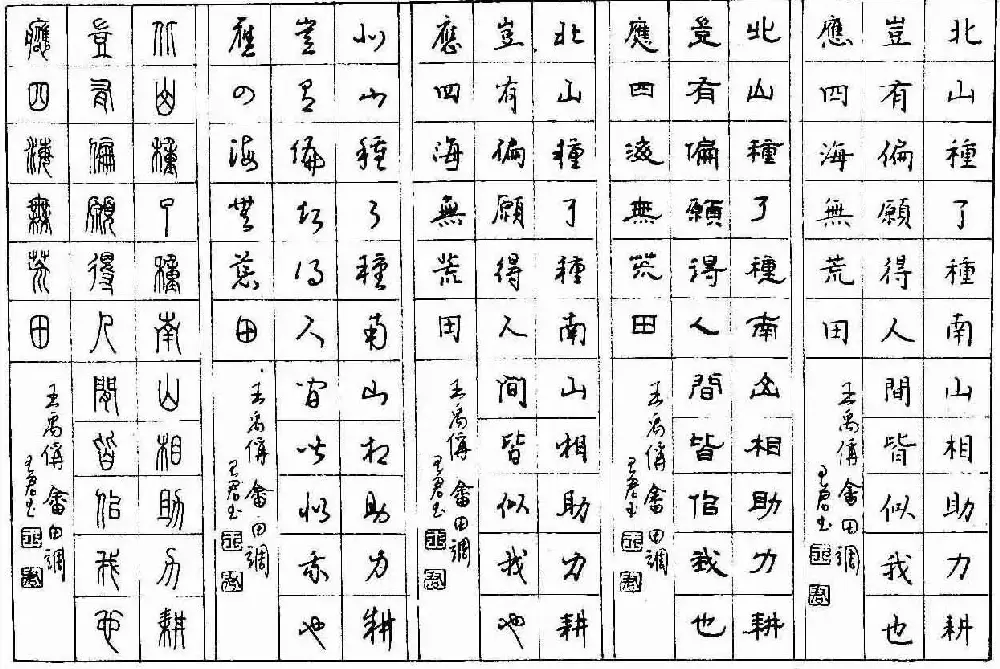 北山種了種南山相助力耕
豈有偏願得人間皆似我也
應四海無荒田
王禹偁畬田調
北山種了種南山相助力耕
豈有偏願得人間皆似我也
應四海無荒田
王禹偁畬田調
北山種了種南山相助力耕
豈有偏願得人間皆似我也
應四海無荒田
王禹偁畬田調
北山種了種南山相助力耕
豈有偏願得人間皆似我也
應四海無荒田
王禹偁畬田調
北山種了種南山相助力耕
豈有偏願得人間皆似我也
應四海無荒田
王禹偁畬田調